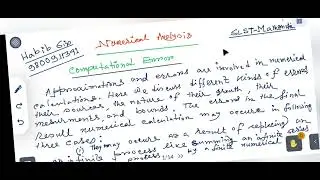 Habib Sir
9800911391
Numerical Analysis
SLST-Mathematics
Computational Error
Approximations and errors are involved in numerical
calculations. Here we discuss different kinds of errors
their sources, the nature of their growth, their
mesurments, and bounds. The errors in the final
result numerical calculation may occur in following
three cases:
(i) They may occur as a result of replacing an
infinite process like summing an infinite series
process by a finite numerical